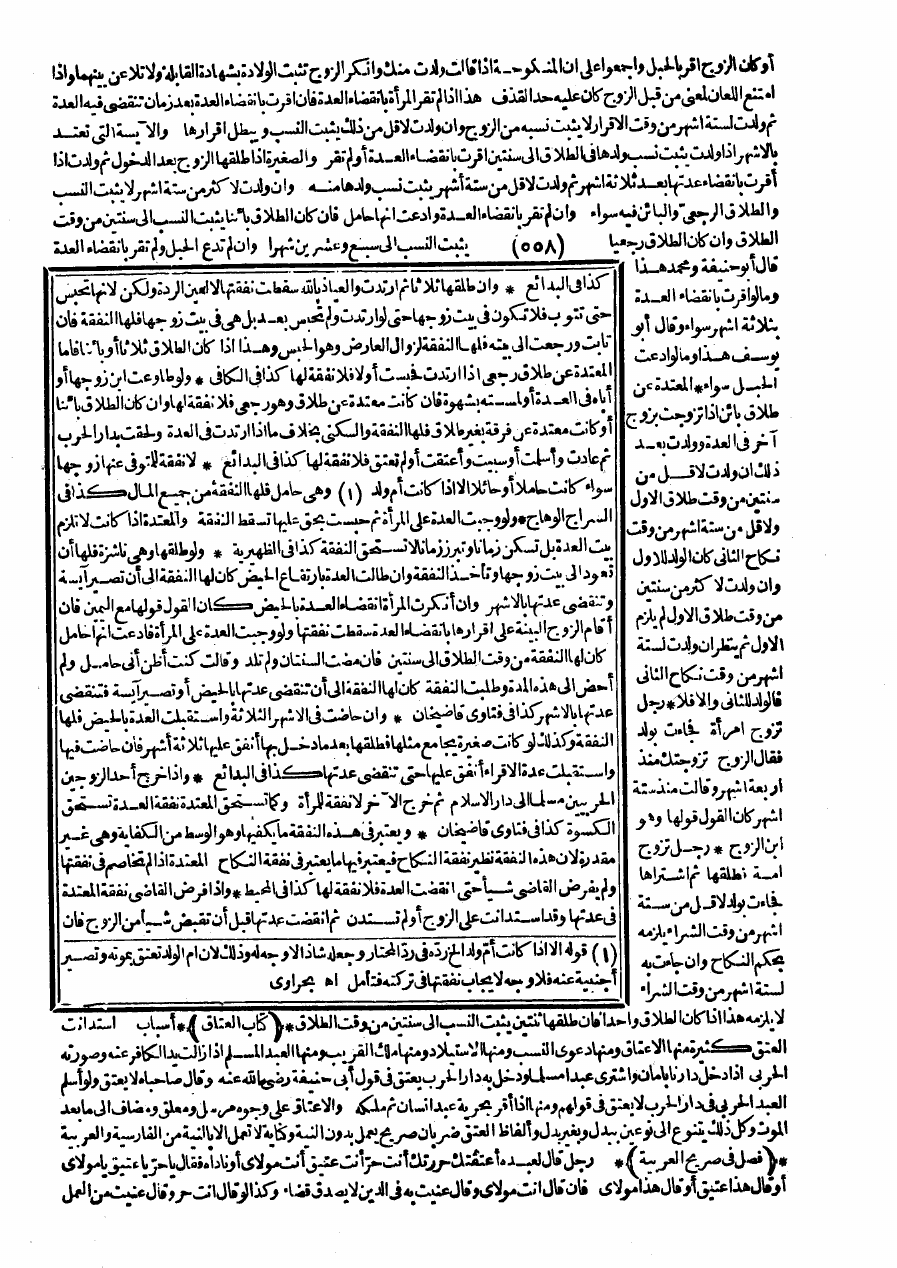 أو كان الزوج اقر بالحبل واجمعوا على ان المنكوحة اذا قالت ولدت منك وانكر الزوج تثبت الولادة بشهادة القابلة ولا تلاعن بينهما واذا
امتنع اللعان لمعنى من قبل الزوج كان عليه حد القذف هذا اذا لم تقر المرأة بانقضاء العدة فان اقرت بانقضاء العدة بعد زمان تنقضى فيه العدة
ثم ولدت لستة اشهر من وقت الاقرار لا يثبت نسبه من الزوج وان ولدت لاقل من ذلك يثبت النسب ويبطل اقرارها والآيسة التى تعتد
بالاشهر اذا ولدت يثبت نسب ولدها فى الطلاق الى سنتين اقرت بانقضاء العدة أولم تقر والصغيرة اذا طلقها الزوج بعد الدخول ثم ولدت اذا
أقرت بانقضاء عدتها بعد ثلاثة اشهر ثم ولدت لاقل من ستة أشهر يثبت نسب ولدها منه وان ولدت لاكثر من ستة اشهر لا يثبت النسب
والطلاق الرجعى والبائن فيه سواء وان لم تقر بانقضاء العدة وادعت انها حامل فان كان الطلاق بائنا يثبت النسب الى سنتين من وقت
الطلاق وان كان الطلاق رجعيا (٥٥٨) يثبت النسب الى سبع وعشرين شهرا وان لم تدع الحبل ولم تقر بانقضاء العدة
قال أبو حنيفة ومحمد هذا
ومالو اقرت بانقضاء العدة
بثلاثة اشهر سواء وقال أبو
يوسف هذا ومالو ادعت
الحبل سواء * المعتدة عن
طلاق بائن اذا تزوجت بزوج
آخر فى العدة وولدت بعد
ذلك ان ولدت لاقل من
سنتين من وقت طلاق الاول
ولاقل من ستة اشهر من وقت
نكاح الثانى كان الولد للاول
وان ولدت لاكثر من سنتين
من وقت طلاق الاول لم يلزم
الاول ثم ينظر ان ولدت لستة
اشهر من وقت نكاح الثانى
فالولد للثانى والافلا * رجل
تزوج امرأة فجاءت بولد
فقال الزوج تزوجتك منذ
اربعة اشهر وقالت منذ ستة
اشهر كان القول قولها وهو
ابن الزوج * رجل تزوج
امة نطلقها ثم اشتراها
فجاءت بولد لاقل من ستة
اشهر من وقت الشراء يلزمه
بحكم النكاح وان جاءت به
لستة اشهر من وقت الشراء
كذا فى البدائع * وان طلقها ثلاثا ثم ارتدت والعياذ بالله سقطت نفقتها لا لعين الردة ولكن لانها تحبس
حتى تتوب فلا تكون فى بيت زوجها حتى لو ارتدت ولم تحبس بعد بل هى فى بيت زوجها فلها النفقة فان
تابت ورجعت الى بيته فلها النفقة لزوال العارض وهو الحبس وهذا اذا كان الطلاق ثلاثا أو بائنا فاما
المعتدة عن طلاق رجعى اذا ارتدت فحبست أولا فلا نفقة لها كذا فى الكافى * ولو طاوعت ابن زوجها أو
أباه فى العدة أو لمسته بشهوة فان كانت معتدة عن طلاق وهو رجعى فلا نفقة لها وان كان الطلاق بائنا
أو كانت معتدة عن فرقة بغير طلاق فلها النفقة والسكنى بخلاف ما اذا ارتدت فى العدة ولحقت بدار الحرب
ثم عادت وأسلمت أو سبيت وأعتقت أولم تعتق فلا نفقة لها كذا فى البدائع * لا نفقة للمتوفى عنها زوجها
سواء كانت حاملا أو حائلا الا اذا كانت أم ولد (١) وهى حامل فلها النفقة من جميع المال كذا فى
السراج الوهاج * ولو وجبت العدة على المرأة ثم حبست بحق عليها تسقط النفقة والمعتدة اذا كانت لا تلزم
بيت العدة بل تسكن زمانا وتبرز زمانا لا تستحق النفقة كذا فى الظهيرية * ولو طلقها وهى ناشزة فلها أن
تعود الى بيت زوجها وتأخذ النفقة وان طالت العدة بارتفاع الحيض كان لها النفقة الى أن تصير آيسة
وتنقضى عدتها بالاشهر وان أنكرت المرأة انقضاء العدة بالحيض كان القول قولها مع اليمين فان
أقام الزوج البينة على اقرارها بانقضاء العدة سقطت نفقتها ولو وجبت العدة على المرأة فادعت انها حامل
كان لها النفقة من وقت الطلاق الى سنتين فان مضت السنتان ولم تلد وقالت كنت أظن أنى حامل ولم
أحض الى هذه المدة وطلبت النفقة كان لها النفقة الى أن تنقضى عدتها بالحيض أو تصير آيسة فتنقضى
عدتها بالاشهر كذا فى فتاوى قاضيخان * وان حاضت فى الاشهر الثلاثة واستقبلت العدة بالحيض فلها
النفقة وكذلك لو كانت صغيرة يجامع مثلها فطلقها بعد ما دخل بها أنفق عليها ثلاثة أشهر فان حاضت فيها
واستقبلت عدة الاقراء أنفق عليها حتى تنقضى عدتها كذا فى البدائع * واذا خرج أحد الزوجين
الحربيين مسلما الى دار الاسلام ثم خرج الآخر لا نفقة للمرأة وكما تستحق المعتدة نفقة العدة تستحق
الكسوة كذا فى فتاوى قاضيخان * ويعتبر فى هذه النفقة ما يكفيها وهو الوسط من الكفاية وهى غير
مقدرة لان هذه النفقة نظير نفقة النكاح فيعتبر فيها ما يعتبر فى نفقة النكاح المعتدة اذا لم تخاصم فى نفقتها
ولم يفرض القاضى شيأ حتى انقضت العدة فلا نفقة لها كذا فى المحيط * واذا فرض القاضى نفقة المعتدة
فى عدتها وقد استدانت على الزوج أولم تستدن ثم انقضت عدتها قبل أن تقبض شيأ من الزوج فان
(١) قوله الا اذا كانت أم ولد الخ رده فى رد المحتار وجعله شاذا لا وجه له وذلك لان ام الولد تعتق بموته وتصير
أجنبية عنه فلا وجه لايجاب نفقتها فى تركته فتأمل اه بحراوى
لا يلزمه هذا اذا كان الطلاق واحدا فان طلقها ثنتين يثبت النسب الى سنتين من وقت الطلاق * (كتاب العتاق) * أسباب استدانت
العتق كثيرة منها الاعتاق ومنها دعوى النسب ومنها الاستيلاد ومنها ملك القريب ومنها العبد المسلم اذا زالت يد الكافر عنه وصورته
الحربى اذا دخل دارنا بامان واشترى عبدا مسلما ودخل به دار الحرب يعتق فى قول أبى حنيفة رضى الله عنه وقال صاحباه لا يعتق ولو أسلم
العبد الحربى فى دار الحرب لا يعتق فى قولهم ومنها اذا أقر بحرية عبد انسان ثم ملكه والاعتاق على وجوه مرسل ومعلق ومضاف الى ما بعد
الموت وكل ذلك يتنوع الى نوعين ببدل وبغير بدل وألفاظ العتق ضربان صريح يعمل بدون النية وكناية لا تعمل الا بالنية من الفارسية والعربية
* (فصل فى صريح العربية) * رجل قال لعبده أعتقتك حررتك أنت حر أنت عتيق أنت مولاى أو ناداه فقال يا حر يا عتيق يا مولاى
أو قال هذا عتيق أو قال هذا مولاى فان قال انت مولاى وقال عنيت به فى الدين لا يصدق قضاء وكذا لو قال انت حر وقال عنيت من العمل